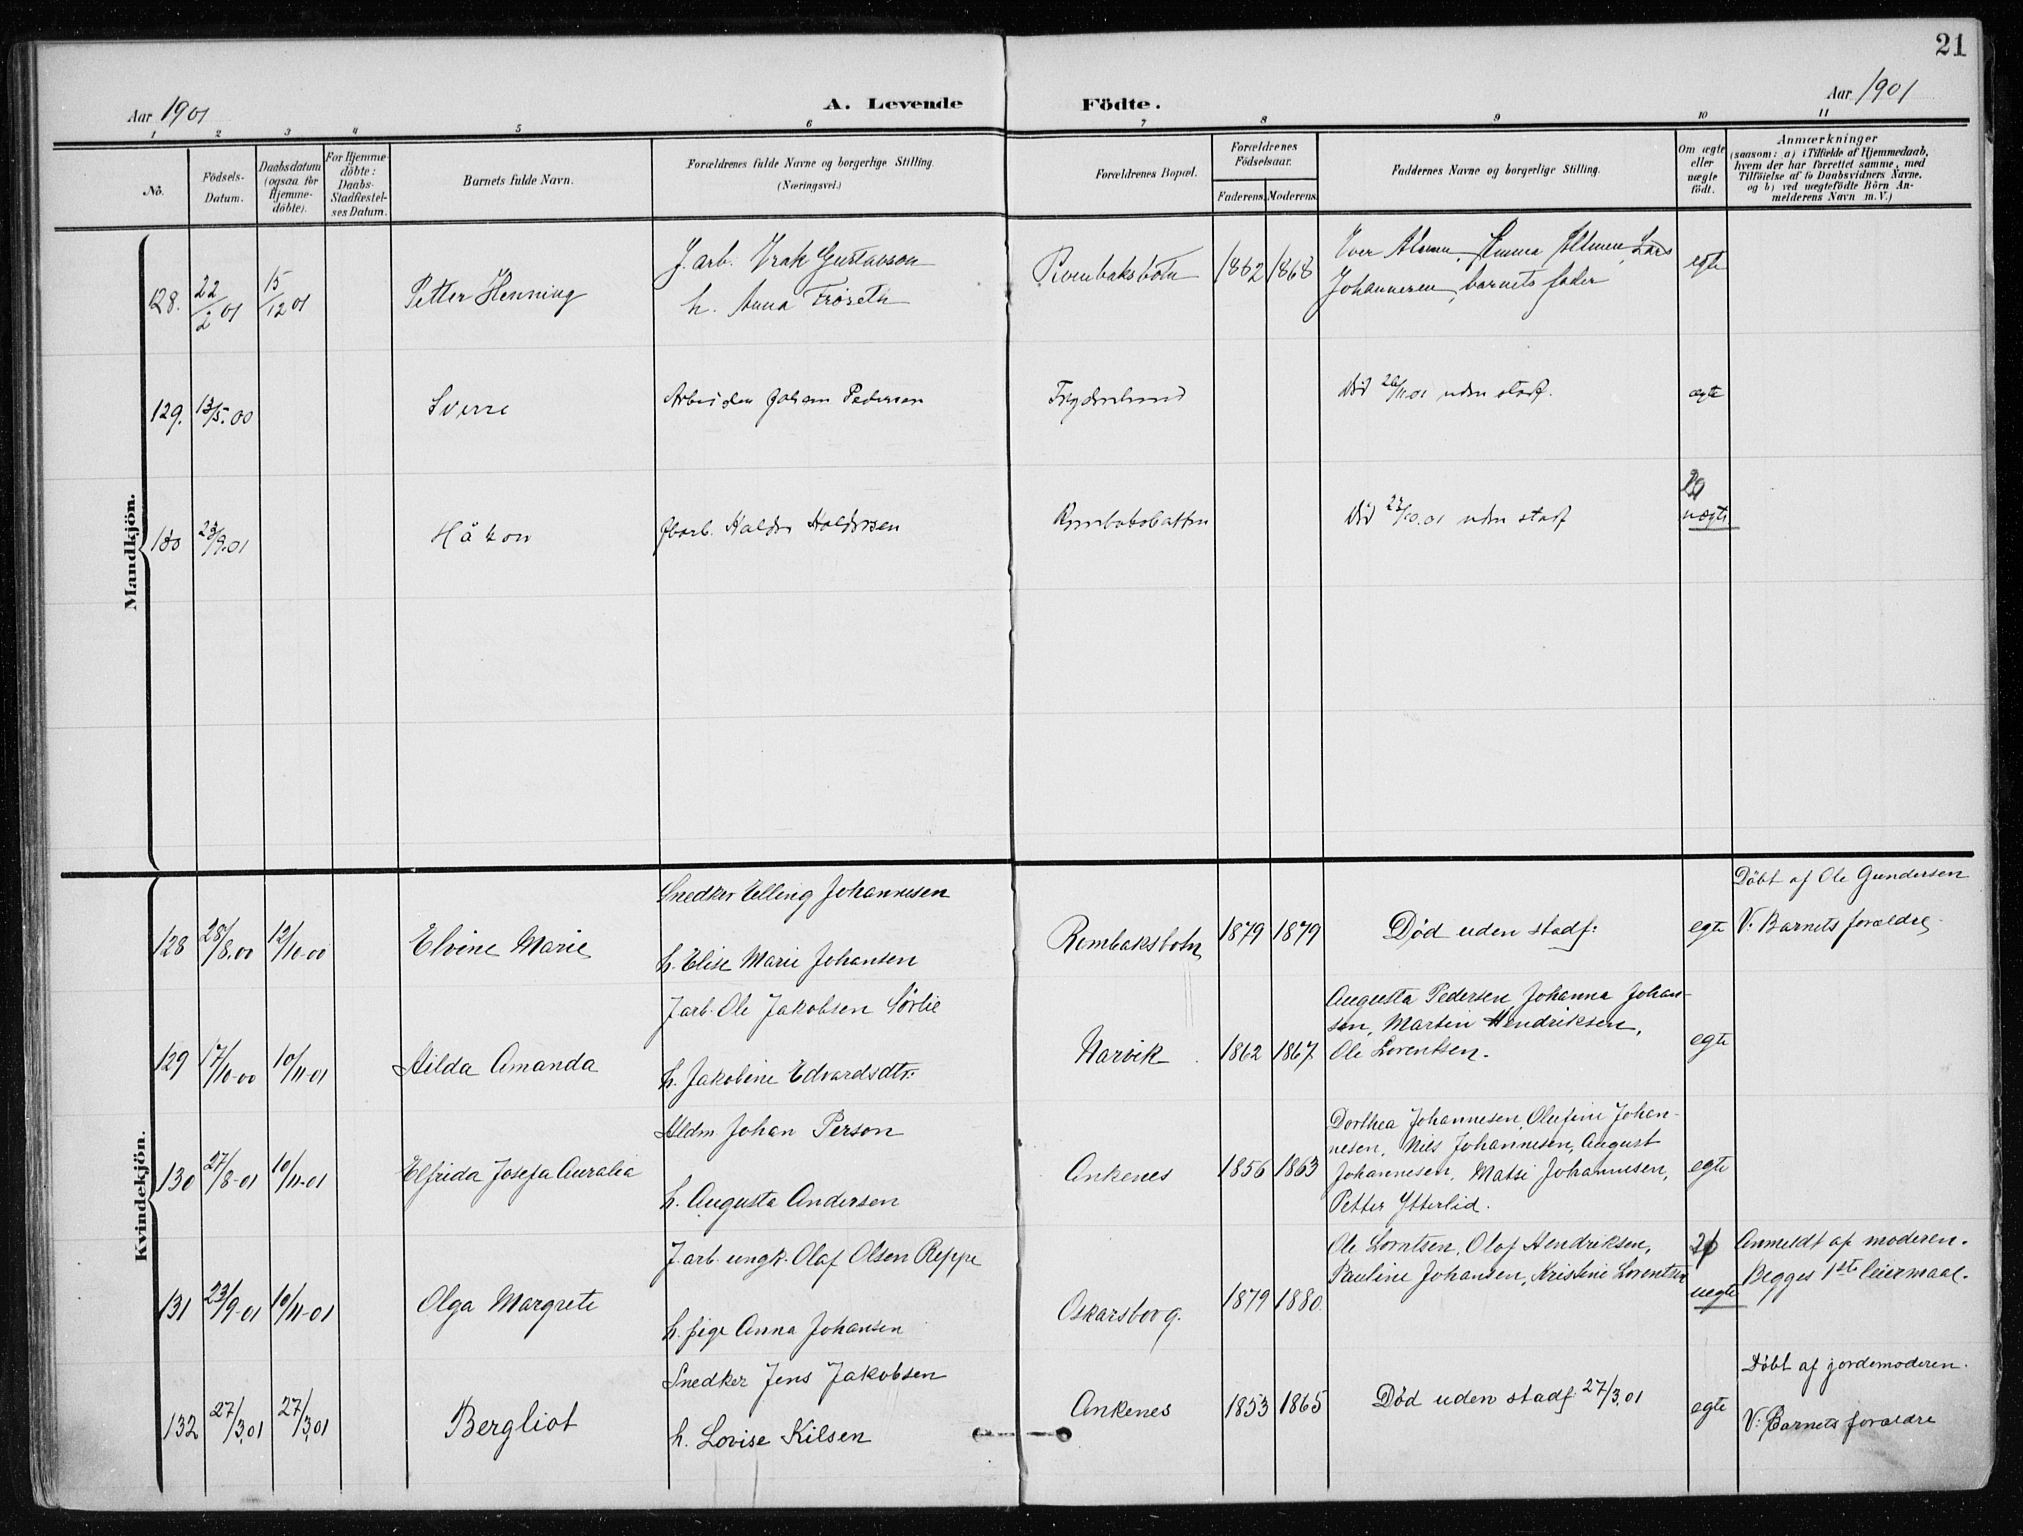 21
Aar 1901
A. Levende Födte.
Aar 1901
1 2 3 4 5 6 7 8 9 10 11
No.
Födsels-
Datum.
Daabsdatum
(ogsaa for
Hjemme-
döbte).
For Hjemme-
döbte:
Daabs-
Stadfæstel-
ses Datum.
Barnets fulde Navn.
Forældrenes fulde Navne og borgerlige Stilling.
(Næringsvei.)
Forældrenes Bopæl.
Forældrenes
Födselsaar.
Faderens. Moderens.
Faddernes Navne og borgerlige Stilling.
Om ægte
eller
uægte
födt.
Anmærkninger
(saasom: a) i Tilfælde af Hjemmedaab,
hvem der har forrettet samme, med
Tilföielse af to Daabsvidners Navne.
og b) ved uægtefödte Börn An-
melderens Navn m. V.)
Mandkjön.
128. 22/2 01 15/12 01 Petter Henning
J. arb. Gustavson
h. Anna
1862 1868
Iver Emma Lars
Johannesen, barnets fader
egte
129. 13/5.00 Sverre
Arbeider Johan Pedersen
Frydenlund
Död 01 uden stadf.
ægte
130 23/9.01 Håkon
Jbarb. Haldor Haldorsen
Död 23/10.01 uden stadf
uægte
Kvindekjön.
128 28/8.00 12/10-00 Elvine Marie
Snedker Elling Johannesen
h. Elise Marie Johansen
Rombaksbotn 1879 1879
Död uden stadf:
egte
Döbt af Ole Gundersen
V: Barnets forældre
129 17/10-00 10/11-01 Hilda Amanda
J. arb. Ole Jakobsen Sörlie
h. Jakobine Edvardsdtr:
Narvik 1862 1867
Augusta Pedersen, Johanna Johan-
sen, Martin Hendriksen,
Ole Lorentsen.
egte
130 27/8-01 10/11-01 Elfrida Josefa Auralia
Hldm Johan Person
h. Augusta Andersen
Ankenes 1856 1863
Dorthea Johannesen, Olufine Johan-
nesen, Nils Johannesen, August
Johannesen, Matsi Johannesen,
Petter Ytterlid.
egte
131 23/9-01 10/11-01 Olga Margrete
J. arb. ungk. Olaf Olsen Reppe
h. pige Anna Johansen
Oskarsborg. 1879 1880.
Ole Lorntsen, Olaf Hendriksen,
Pauline Johansen, Kristine Lorentsen
uegte
Anmeldt af moderen.
Begges 1ste leiermaal.
132 27/3.01 27/3.01 Bergliot
Snedker Jens Jakobsen
h. Lovise Kilsen
Ankenes 1853 1865
Död uden stadf. 27/3.01
egte
Döbt af jordemoderen.
V: Barnets forældre